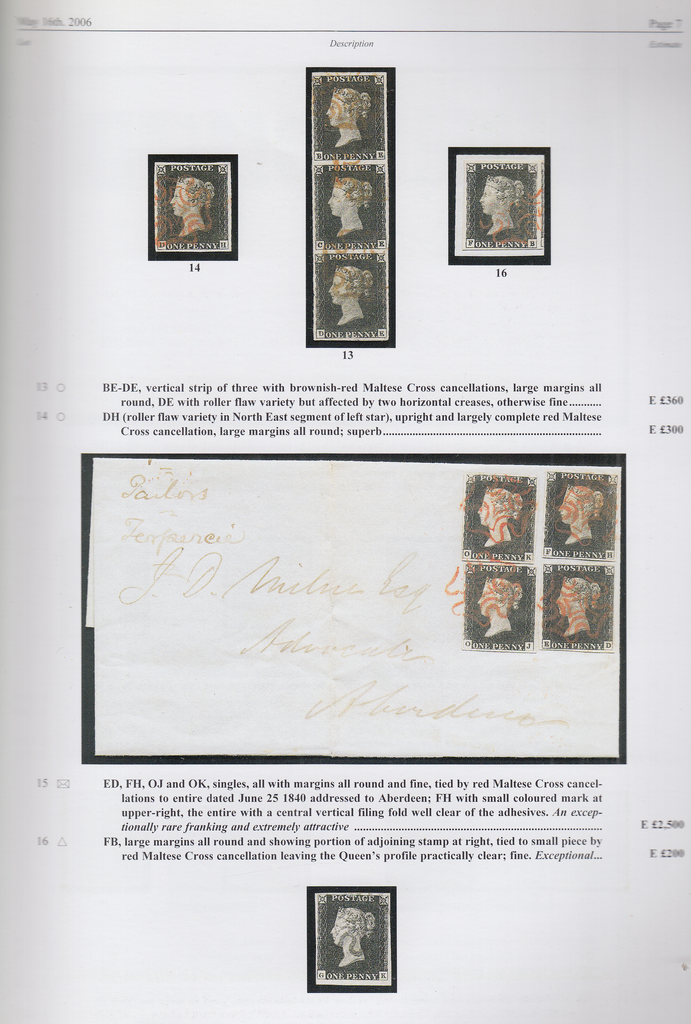 May 16th. 2006 Page 7
Lot Description Estimate
POSTAGE
B ONE PENNY E
POSTAGE
C ONE PENNY E
POSTAGE
D ONE PENNY E
13
POSTAGE
D ONE PENNY H
14
POSTAGE
F ONE PENNY B
16
13 BE-DE, vertical strip of three with brownish-red Maltese Cross cancellations, large margins all
round, DE with roller flaw variety but affected by two horizontal creases, otherwise fine........... E £360
14 DH (roller flaw variety in North East segment of left star), upright and largely complete red Maltese
Cross cancellation, large margins all round; superb............................................................ E £300
Tailors
J. D. Milne Esq
Advocate
Aberdeen
POSTAGE
O ONE PENNY K
POSTAGE
F ONE PENNY H
POSTAGE
O ONE PENNY J
POSTAGE
E ONE PENNY D
15 ED, FH, OJ and OK, singles, all with margins all round and fine, tied by red Maltese Cross cancel-
lations to entire dated June 25 1840 addressed to Aberdeen; FH with small coloured mark at
upper-right, the entire with a central vertical filing fold well clear of the adhesives. An excep-
tionally rare franking and extremely attractive .................................................................... E £2,500
16 FB, large margins all round and showing portion of adjoining stamp at right, tied to small piece by
red Maltese Cross cancellation leaving the Queen's profile practically clear; fine. Exceptional... E £200
POSTAGE
G ONE PENNY K